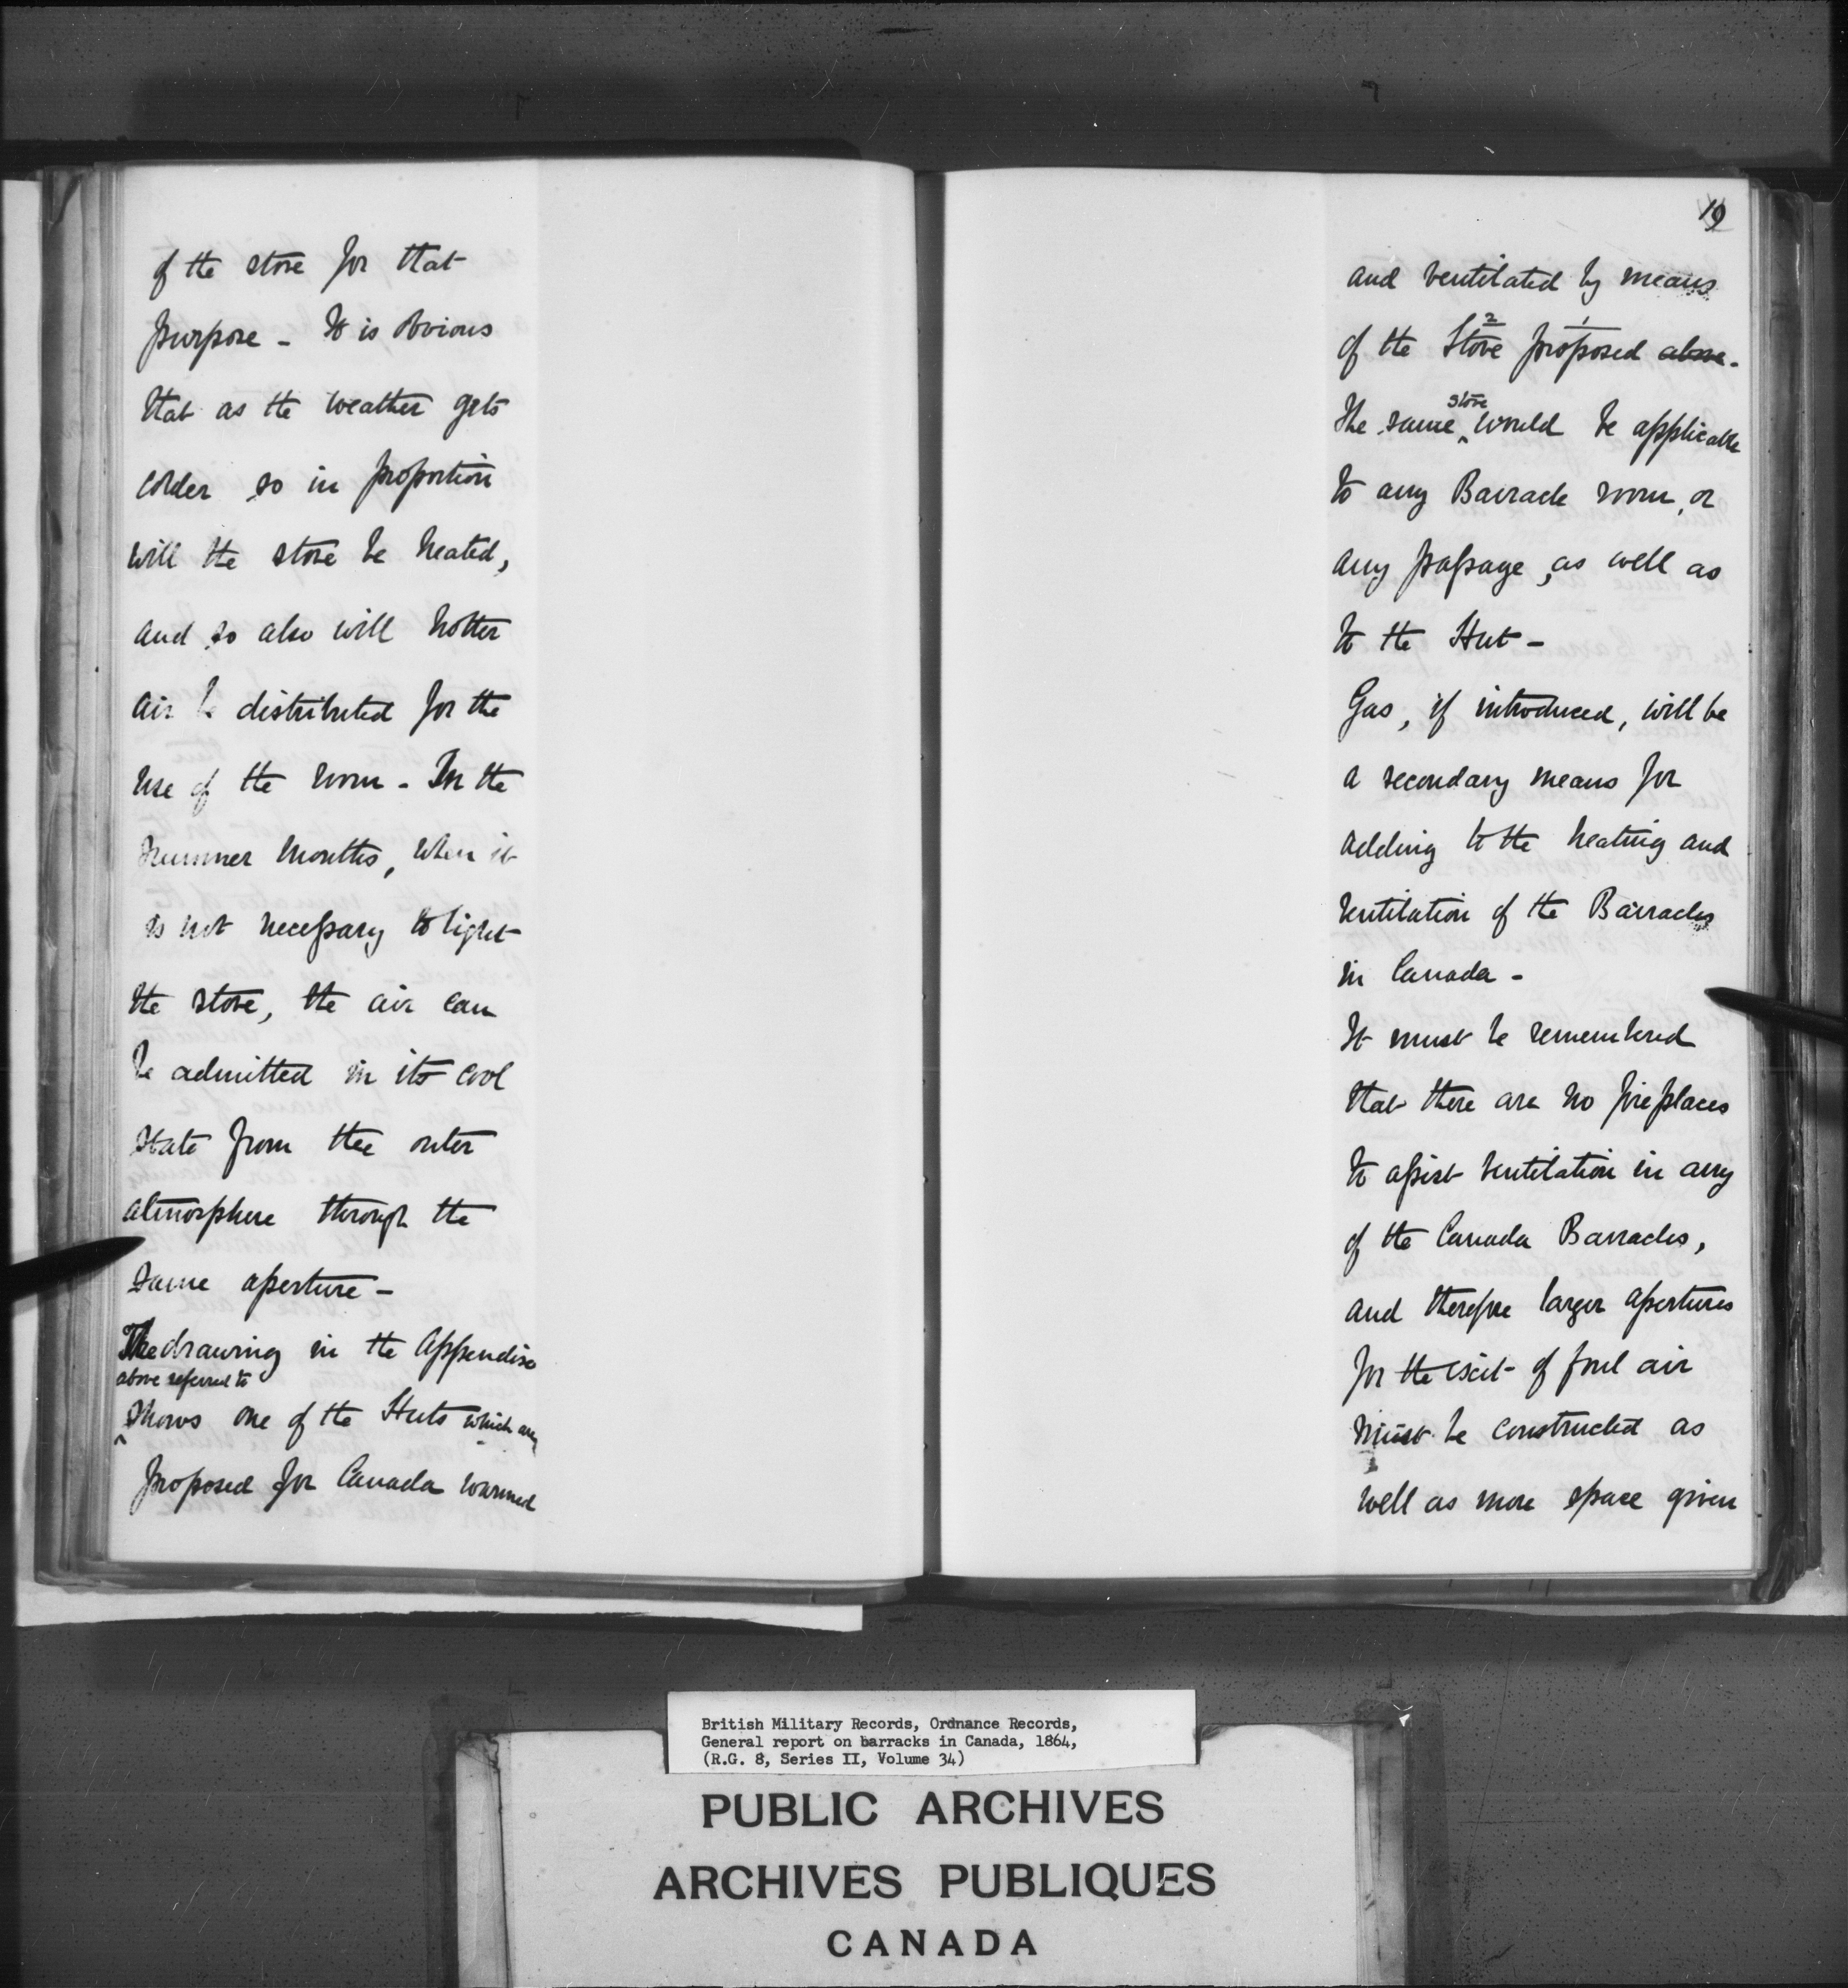 of the stove for that
purpose - It is obvious
that as the weather gets
colder so in proportion
will the stove be heated,
and so also will hotter
air be distributed for the
use of the room - In the
summer months, when it
is not necessary to light
the stove, the air can
be admitted in its cool
state from the outer
atmosphere through the
same aperture -
The drawing in the Appendix
above referred to
shows one of the Huts which are
proposed for Canada warmed
19
and ventilated by means
2 1
of the Stove proposed above.
stove
The same ^ would be applicable
to any Barrack room, or
any passage, as well as
to the Hut -
Gas, if introduced, will be
a secondary means for
adding to the heating and
ventilation of the Barracks
in Canada -
It must be remembered
that there are no fireplaces
to assist ventilation in any
of the Canada Barracks,
and therefore larger apertures
for the exit of foul air
must be constructed as
well as more space given
British Military Records, Ordnance Records,
General report on barracks in Canada, 1864,
(R.G. 8, Series II, Volume 34)
PUBLIC ARCHIVES
ARCHIVES PUBLIQUES
CANADA